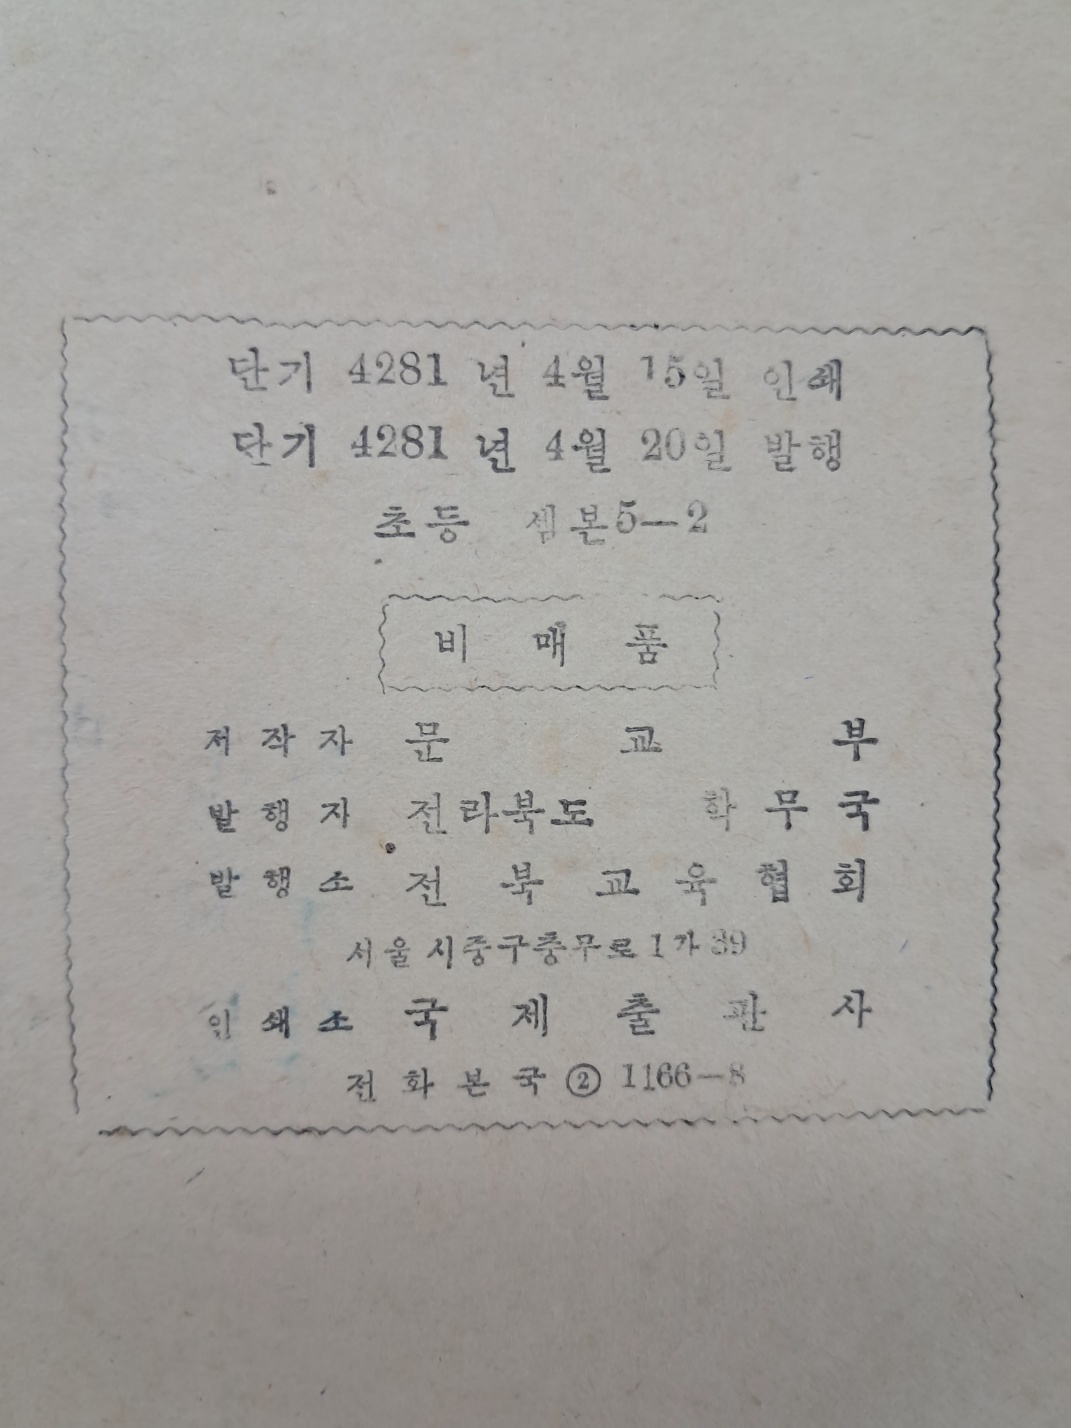 단기 4281 년 4월 15일 인쇄
단기 4281 년 4월 20일 발행
초등 셈본 5—2
비 매 품
저 작 자 문 교 부
발 행 자 전라북도 학 무 국
발 행 소 전 북 교 육 협 회
서울시중구충무로1가39
인 쇄 소 국 제 출 판 사
전 화 본 국 ② 1166-8